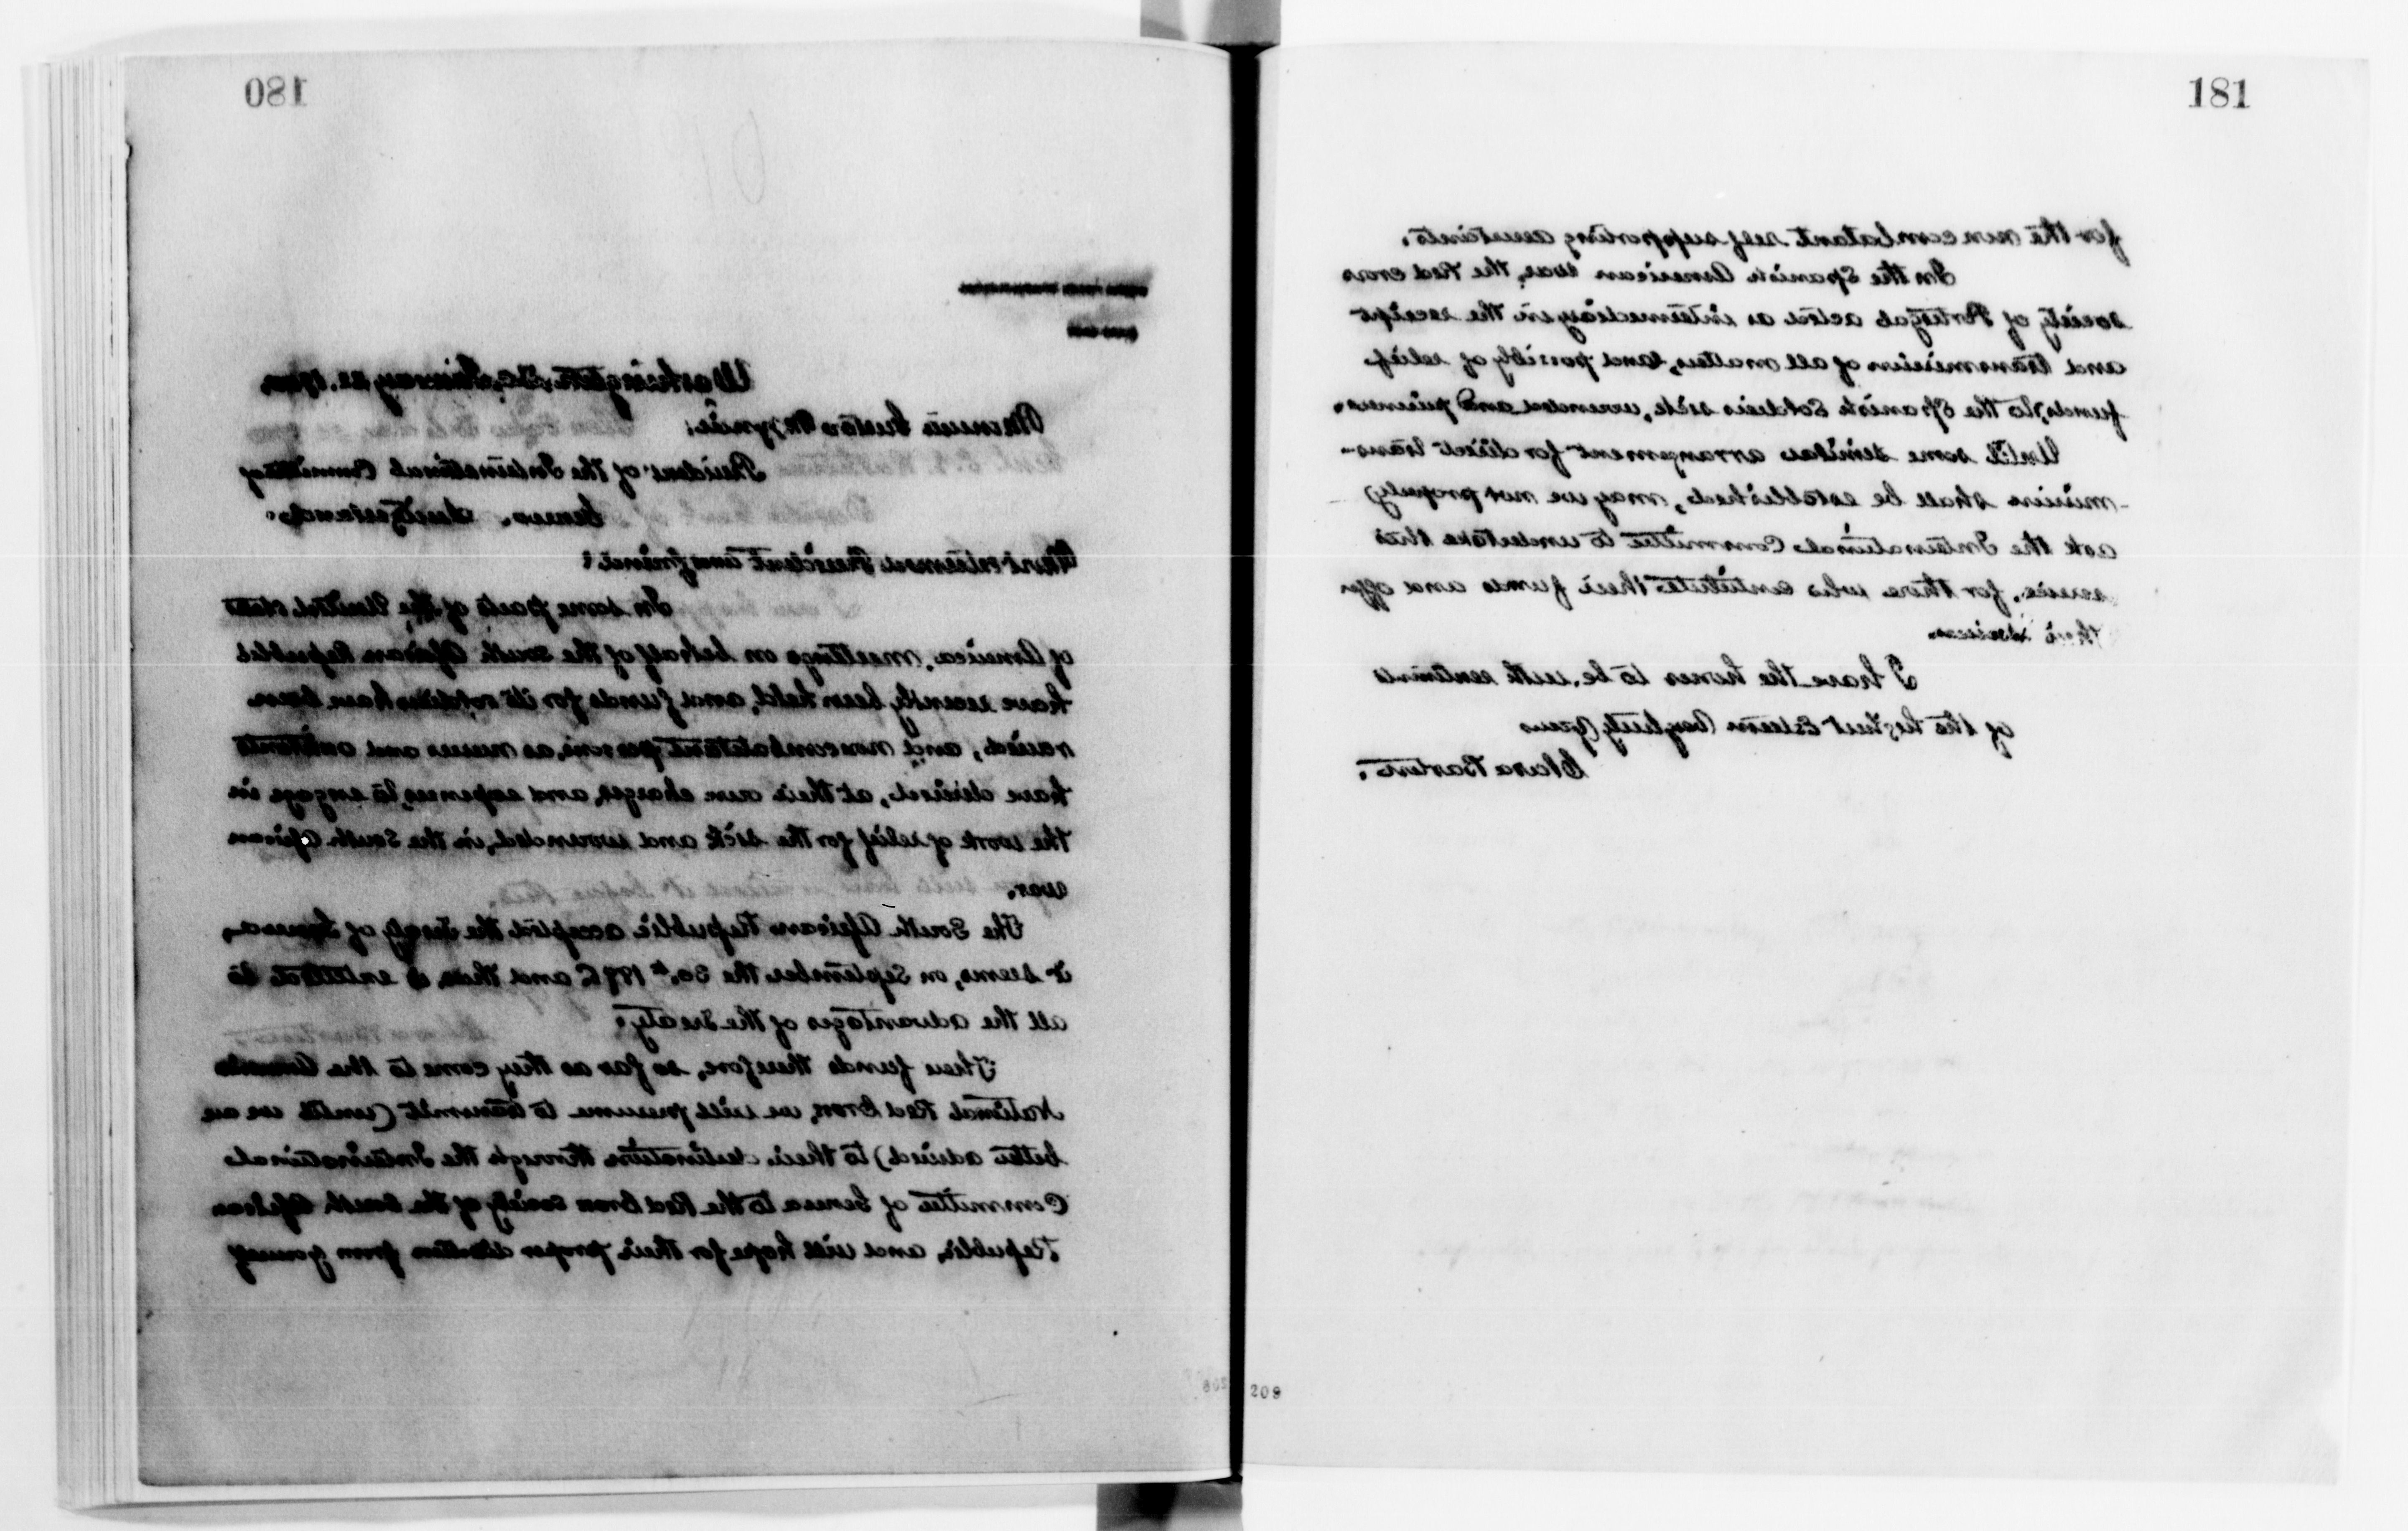 180
Washington, D.C. January 22. 1900.
Monsieur Gustav Moynier:
President of the International Committee of
Geneva. Switzerland.
Most esteemed President and friend:
In some parts of the United States
of America, meetings on behalf of the South African Republic
have recently been held, and funds for its soldiers have been
raised, and noncombatant persons, as nurses and assistants
have desired, at their own charges, and expenses, to engage in
the work of relief for the sick and wounded, in the South African
war.
The South African Republic accepted the treaty of Geneva,
it seems, on September the 30.th 1896 and thus is entitled to
all the advantages of the treaty.
These funds therefore, so far as they come to the American
National Red Cross, we will presume to transmit (until we are
better advised) to their destination through the International
Committee of Geneva to the Red Cross society of the South African
Republic, and will hope for their proper direction from yourself
181
for the non combatant self supporting assistants.
In the Spanish American war, the Red Cross
society of Portugal acted as intermediary in the receipt
and transmission of all matters, and possibly of relief
funds, to the Spanish Soldiers sick, wounded and prisoners.
Until some similar arrangement for direct trans-
-mission shall be established, may we not properly
ask the International Committee to undertake this
service, for those who contribute their funds and offer
their services.
I have the honor to be, with sentiments
of the highest Esteem Very truly Yours
Clara Barton.
208 209